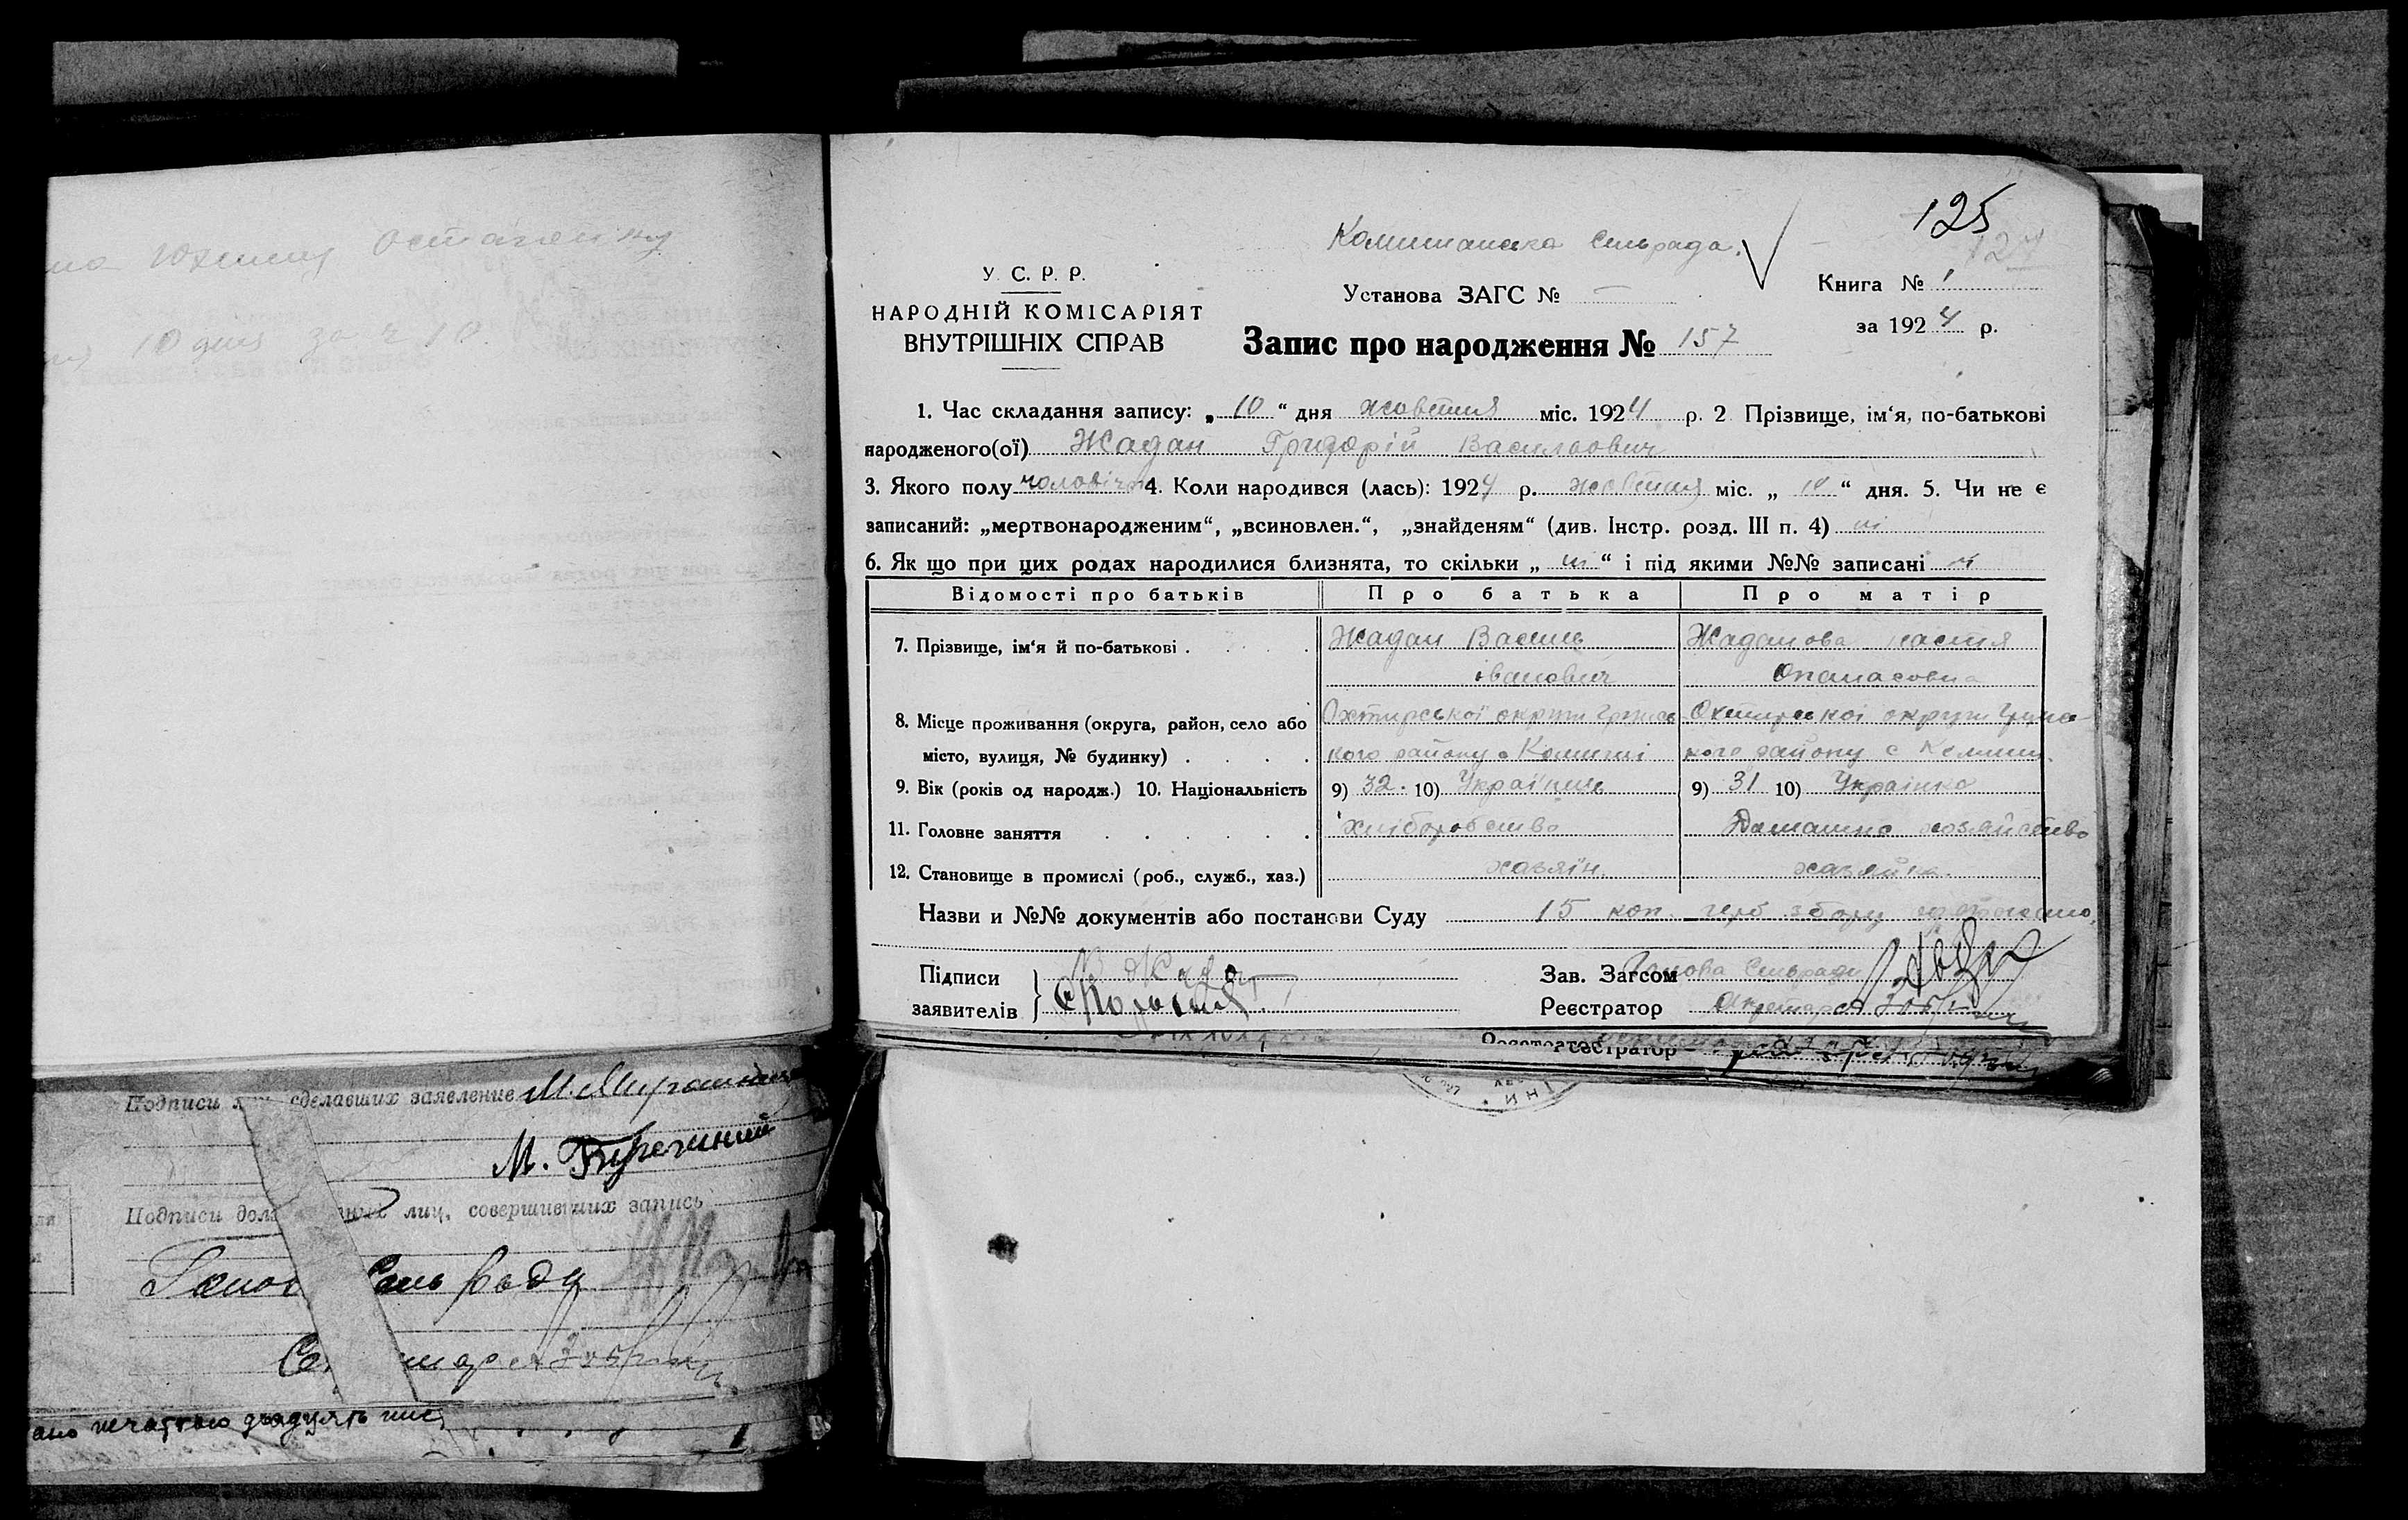 Юхимц Остапенку
10 дня за ч 10.
Подписи сделавших заявление
М.
Подписи лиц, совершивших запись
Сель ради
печаттю двадцять
125
124
Комишанська Сельрада.
У. С. Р. Р.
НАРОДНІЙ КОМІСАРІЯТ
ВНУТРІШНІХ СПРАВ
Установа ЗАГС № —
Книга № 1
за 1924 р.
Запис про народження № 157
1. Час складання запису: „ 10 “ дня жовтня міс. 1924 р. 2 Прізвище, ім‘я, по-батькові
народженого(ої) Жадан Григорій Васильович
3. Якого полу чоловіч 4. Коли народився (лась): 1924 р. жовтня міс. „ 10 “ дня. 5. Чи не є
записаний: „мертвонародженим“, „всиновлен.“, „знайденям“ (див. Інстр. розд. III п. 4) ні
6. Як що при цих родах народилися близнята, то скільки „ ні “ і під якими №№ записані ні
Відомості про батьків Про батька Про матір
7. Прізвище, ім‘я й по-батькові . . . . . Жадан Василь Жаданова настя
іванович Опанасовна
8. Місце проживання (округа, район, село або Охтирської округи Грунсь Охтирської округи Грунс-
місто, вулиця, № будинку) . . . . кого району с Комиші кого району с Комиши.
9. Вік (років од народж.) 10. Національність 9) 32. 10) Українць 9) 31 10) Українка
11. Головне заняття . . . . . . хліборобство Домашнє хозяйство
12. Становище в промислі (роб., служб., хаз.) хазяїн. хазяйка.
Назви и №№ документів або постанови Суду 15 коп. герб збору
Підписи
заявителів
В Жадан
Зав. Загсом Голова Сельради
Реєстратор Секретар
Реєстратор